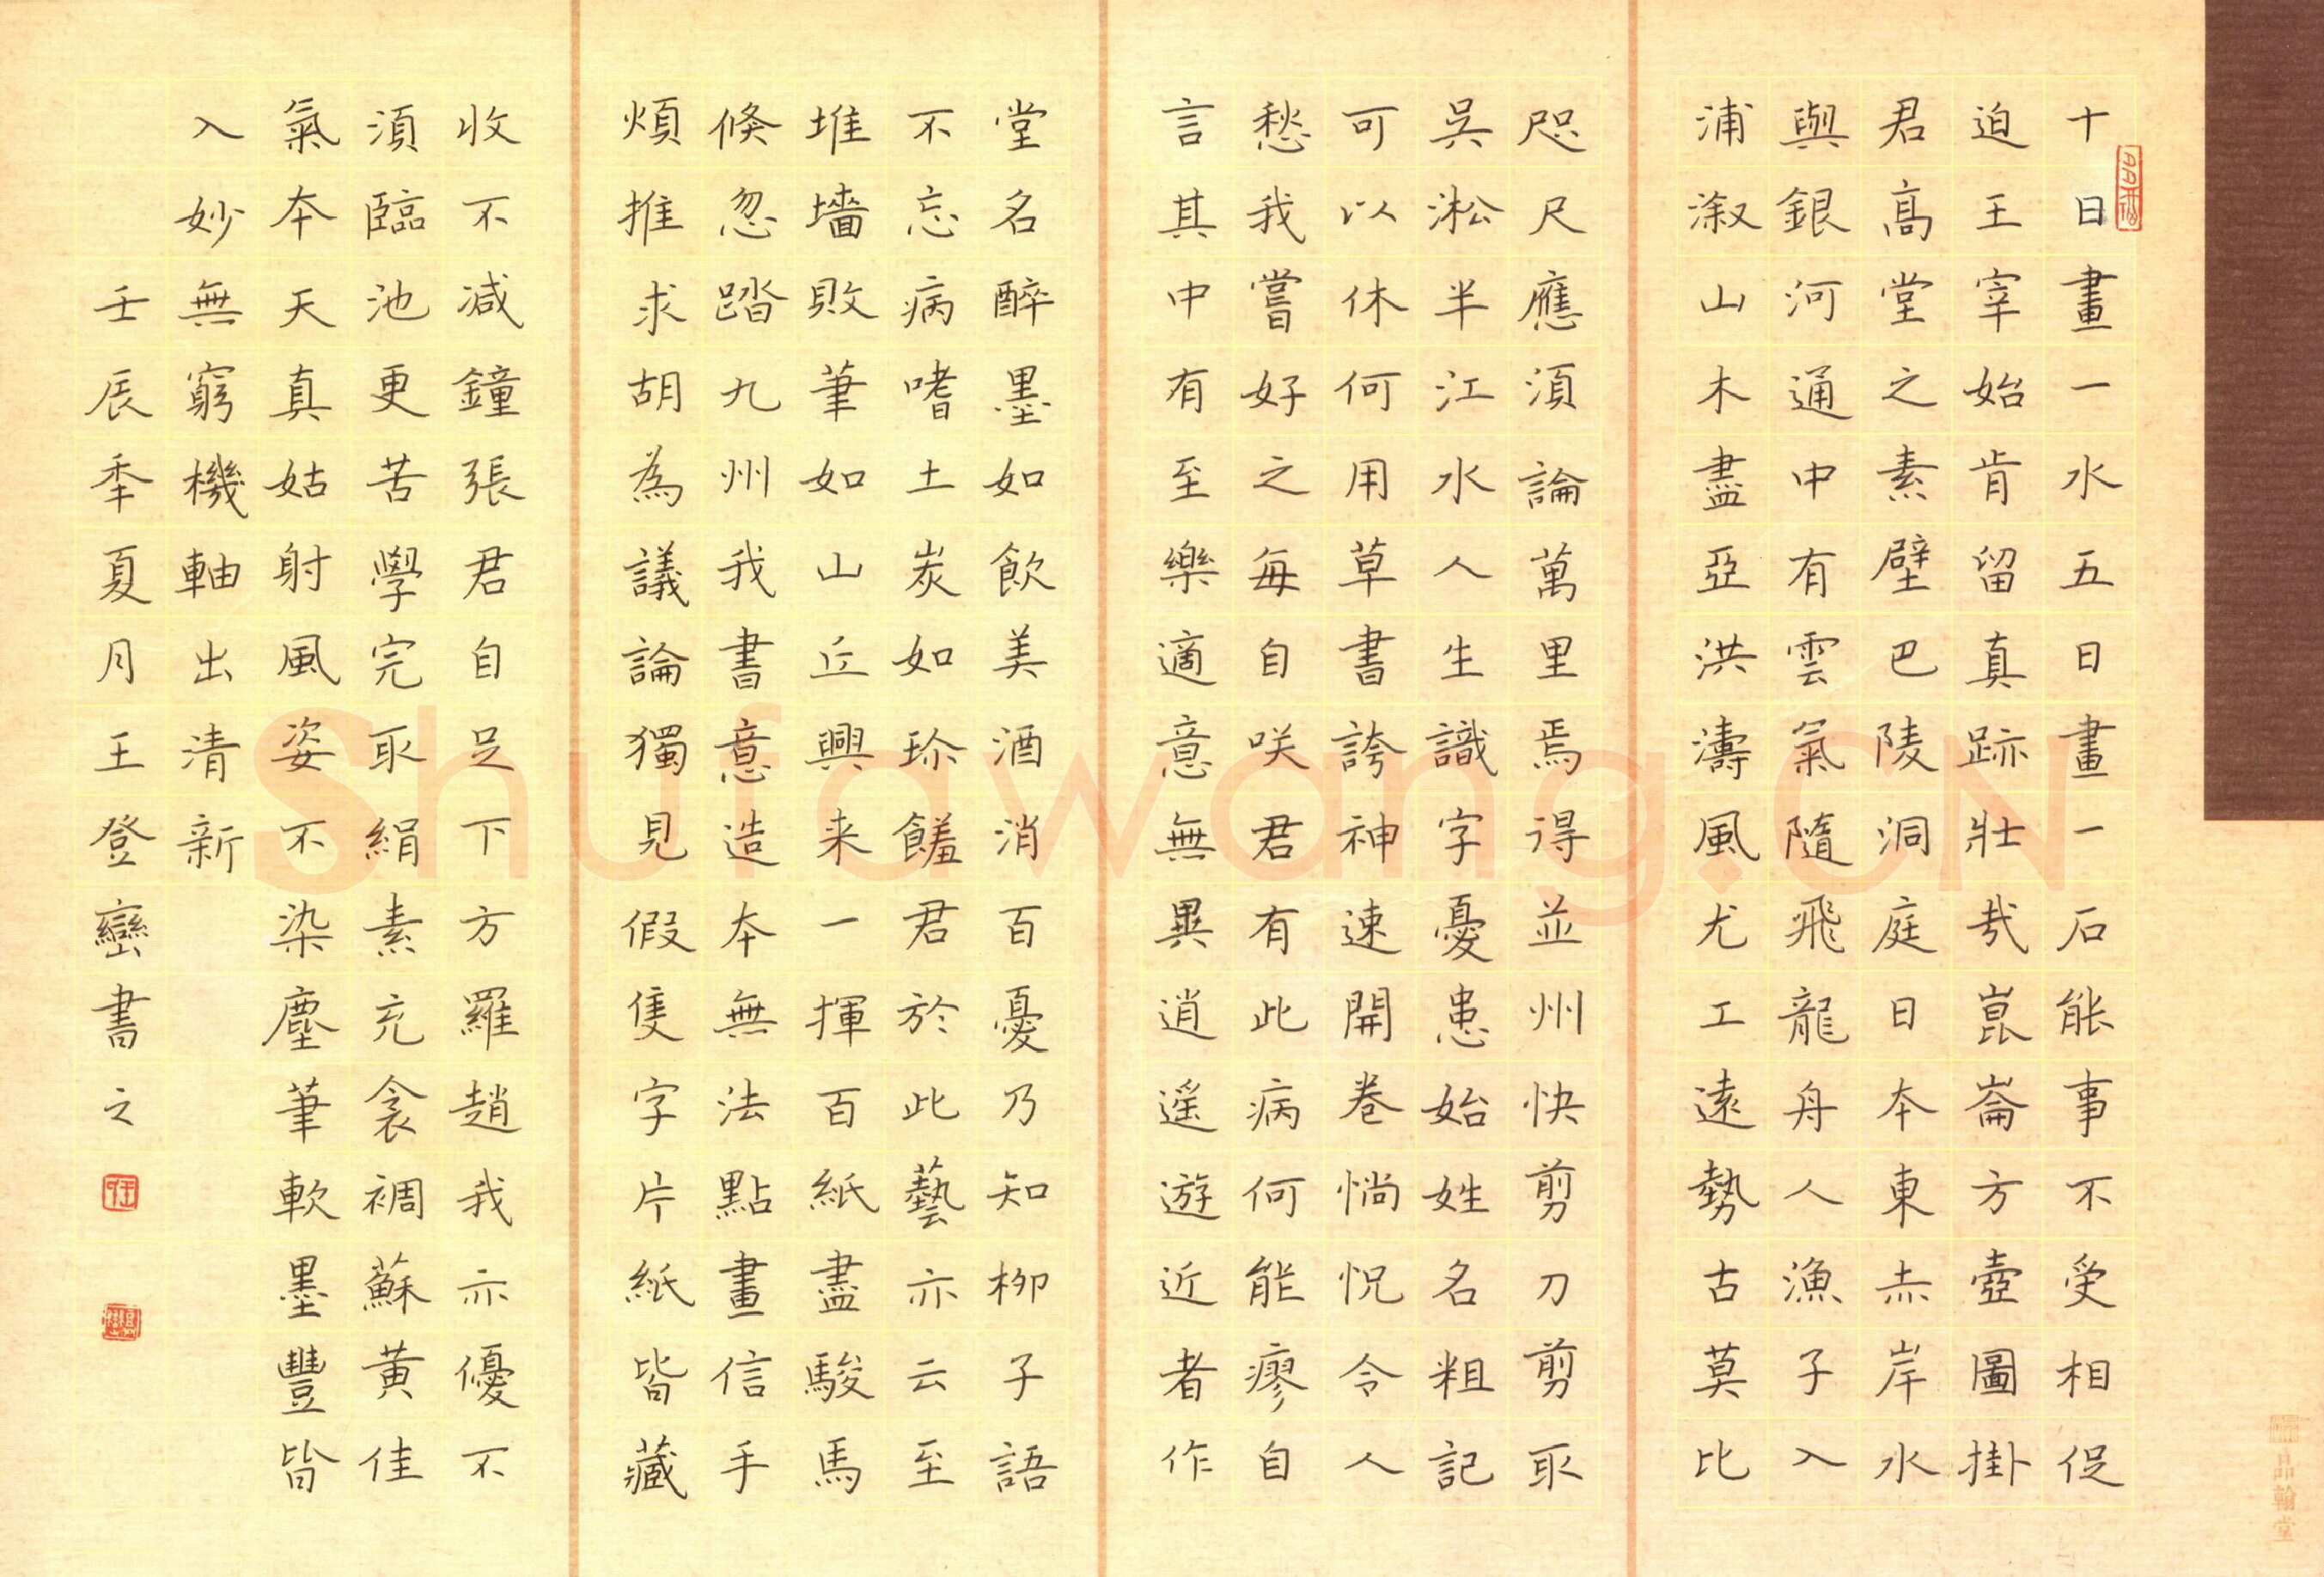 十日畫一水五日畫一石能事不受相促
迫王宰始肯留真跡壯哉崑崙方壺圖掛
君高堂之素壁巴陵洞庭日本東赤岸水
與銀河通中有雲氣隨飛龍舟人漁子入
浦溆山木盡亞洪濤風尤工遠勢古莫比
咫尺應須論萬里焉得並州快剪刀剪取
吳淞半江水人生識字憂患始姓名粗記
可以休何用草書誇神速開卷惝怳令人
愁我嘗好之每自咲君有此病何能瘳自
言其中有至樂適意無異逍遙遊近者作
堂名醉墨如飲美酒消百憂乃知柳子語
不忘病嗜土炭如珍饈君於此藝亦云至
堆墻敗筆如山丘興来一揮百紙盡駿馬
倏忽踏九州我書意造本無法點畫信手
煩推求胡為議論獨見假隻字片紙皆藏
收不減鐘張君自足下方羅趙我亦優不
須臨池更苦學完取絹素充衾裯蘇黃佳
氣本天真姑射風姿不染塵筆軟墨豐皆
入妙無窮機軸出清新
壬辰秊夏月王登巒書之
shufawang.CN
品翰堂